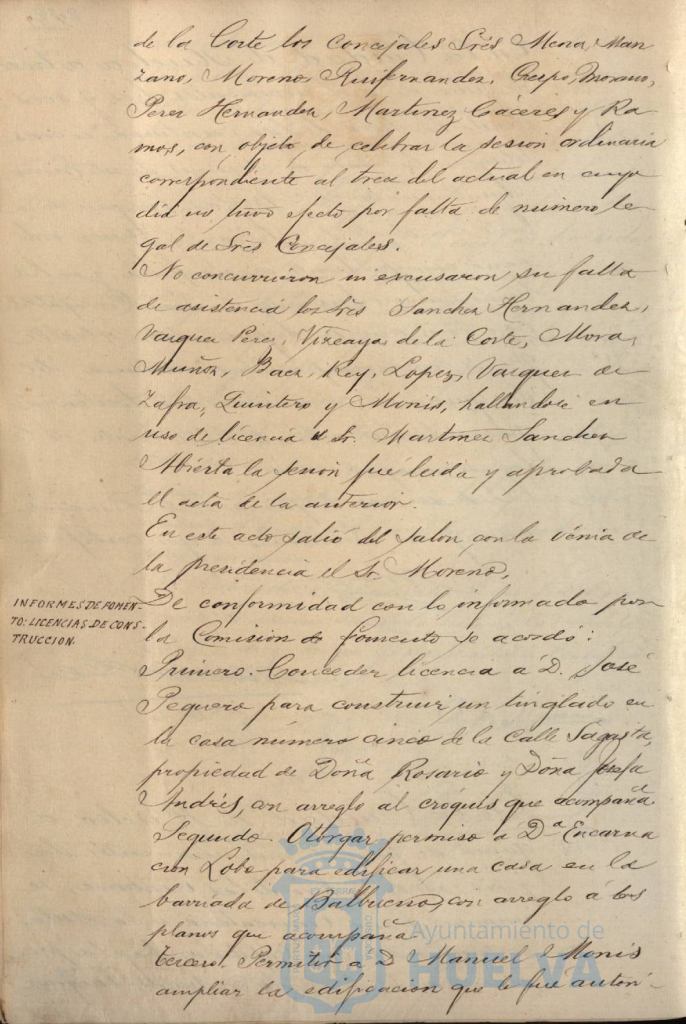 de la Corte los Concejales Srês Mena, Man
zano, Moreno, Ruifernandez, Crespo, Moreno,
Perez Hernandez, Martinez Cáceres y Ra
mos, con objeto de celebrar la sesion ordinaria
correspondiente al trece del actual en cuyo
dia no tuvo efecto por falta de número le
gal de Srês Concejales.
No concurrieron ni excusaron su falta
de asistencia los Srês Sanchez Hernandez,
Vazquez Perez, Vizcaya, de la Corte, Mora,
Muñoz, Baez, Rey, Lopez, Vazquez de
Zafra, Quintero y Monis, hallandose en
uso de licencia el Sr. Martinez Sanchez
Abierta la sesion fué leida y aprobada
el acta de la anterior.
En este acto salió del salon con la vénia de
la presidencia el Sr. Moreno.
INFORMES DE FOMEN-
TO: LICENCIAS DE CONS-
TRUCCION.
De conformidad con lo informado por
la Comision de fomento se acordó:
Primero. Conceder licencia á D. José
Peguero para construir un tinglado en
la casa número cinco de la Calle Sagasta,
propiedad de Doña Rosario y Doña Josefa
Andrés, con arreglo al cróquis que acompaña.
Segundo. Otorgar permiso á Dª Encarna
cion Lobo para edificar una casa en la
barriada de Balbueno, con arreglo á los
planos que acompaña.
Tercero. Permitir á D. Manuel Monis
ampliar la edificacion que le fué autori-
Ayuntamiento de
HUELVA